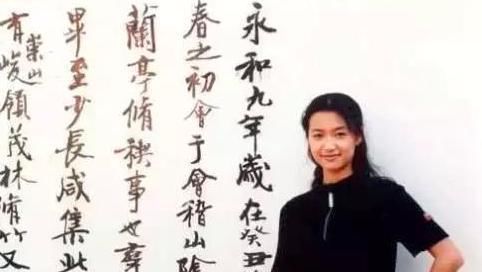 永和九年歲在癸丑
春之初會于會稽山陰
蘭亭脩稧事也羣
畢至少長咸集此
有崇山峻領茂林脩竹又